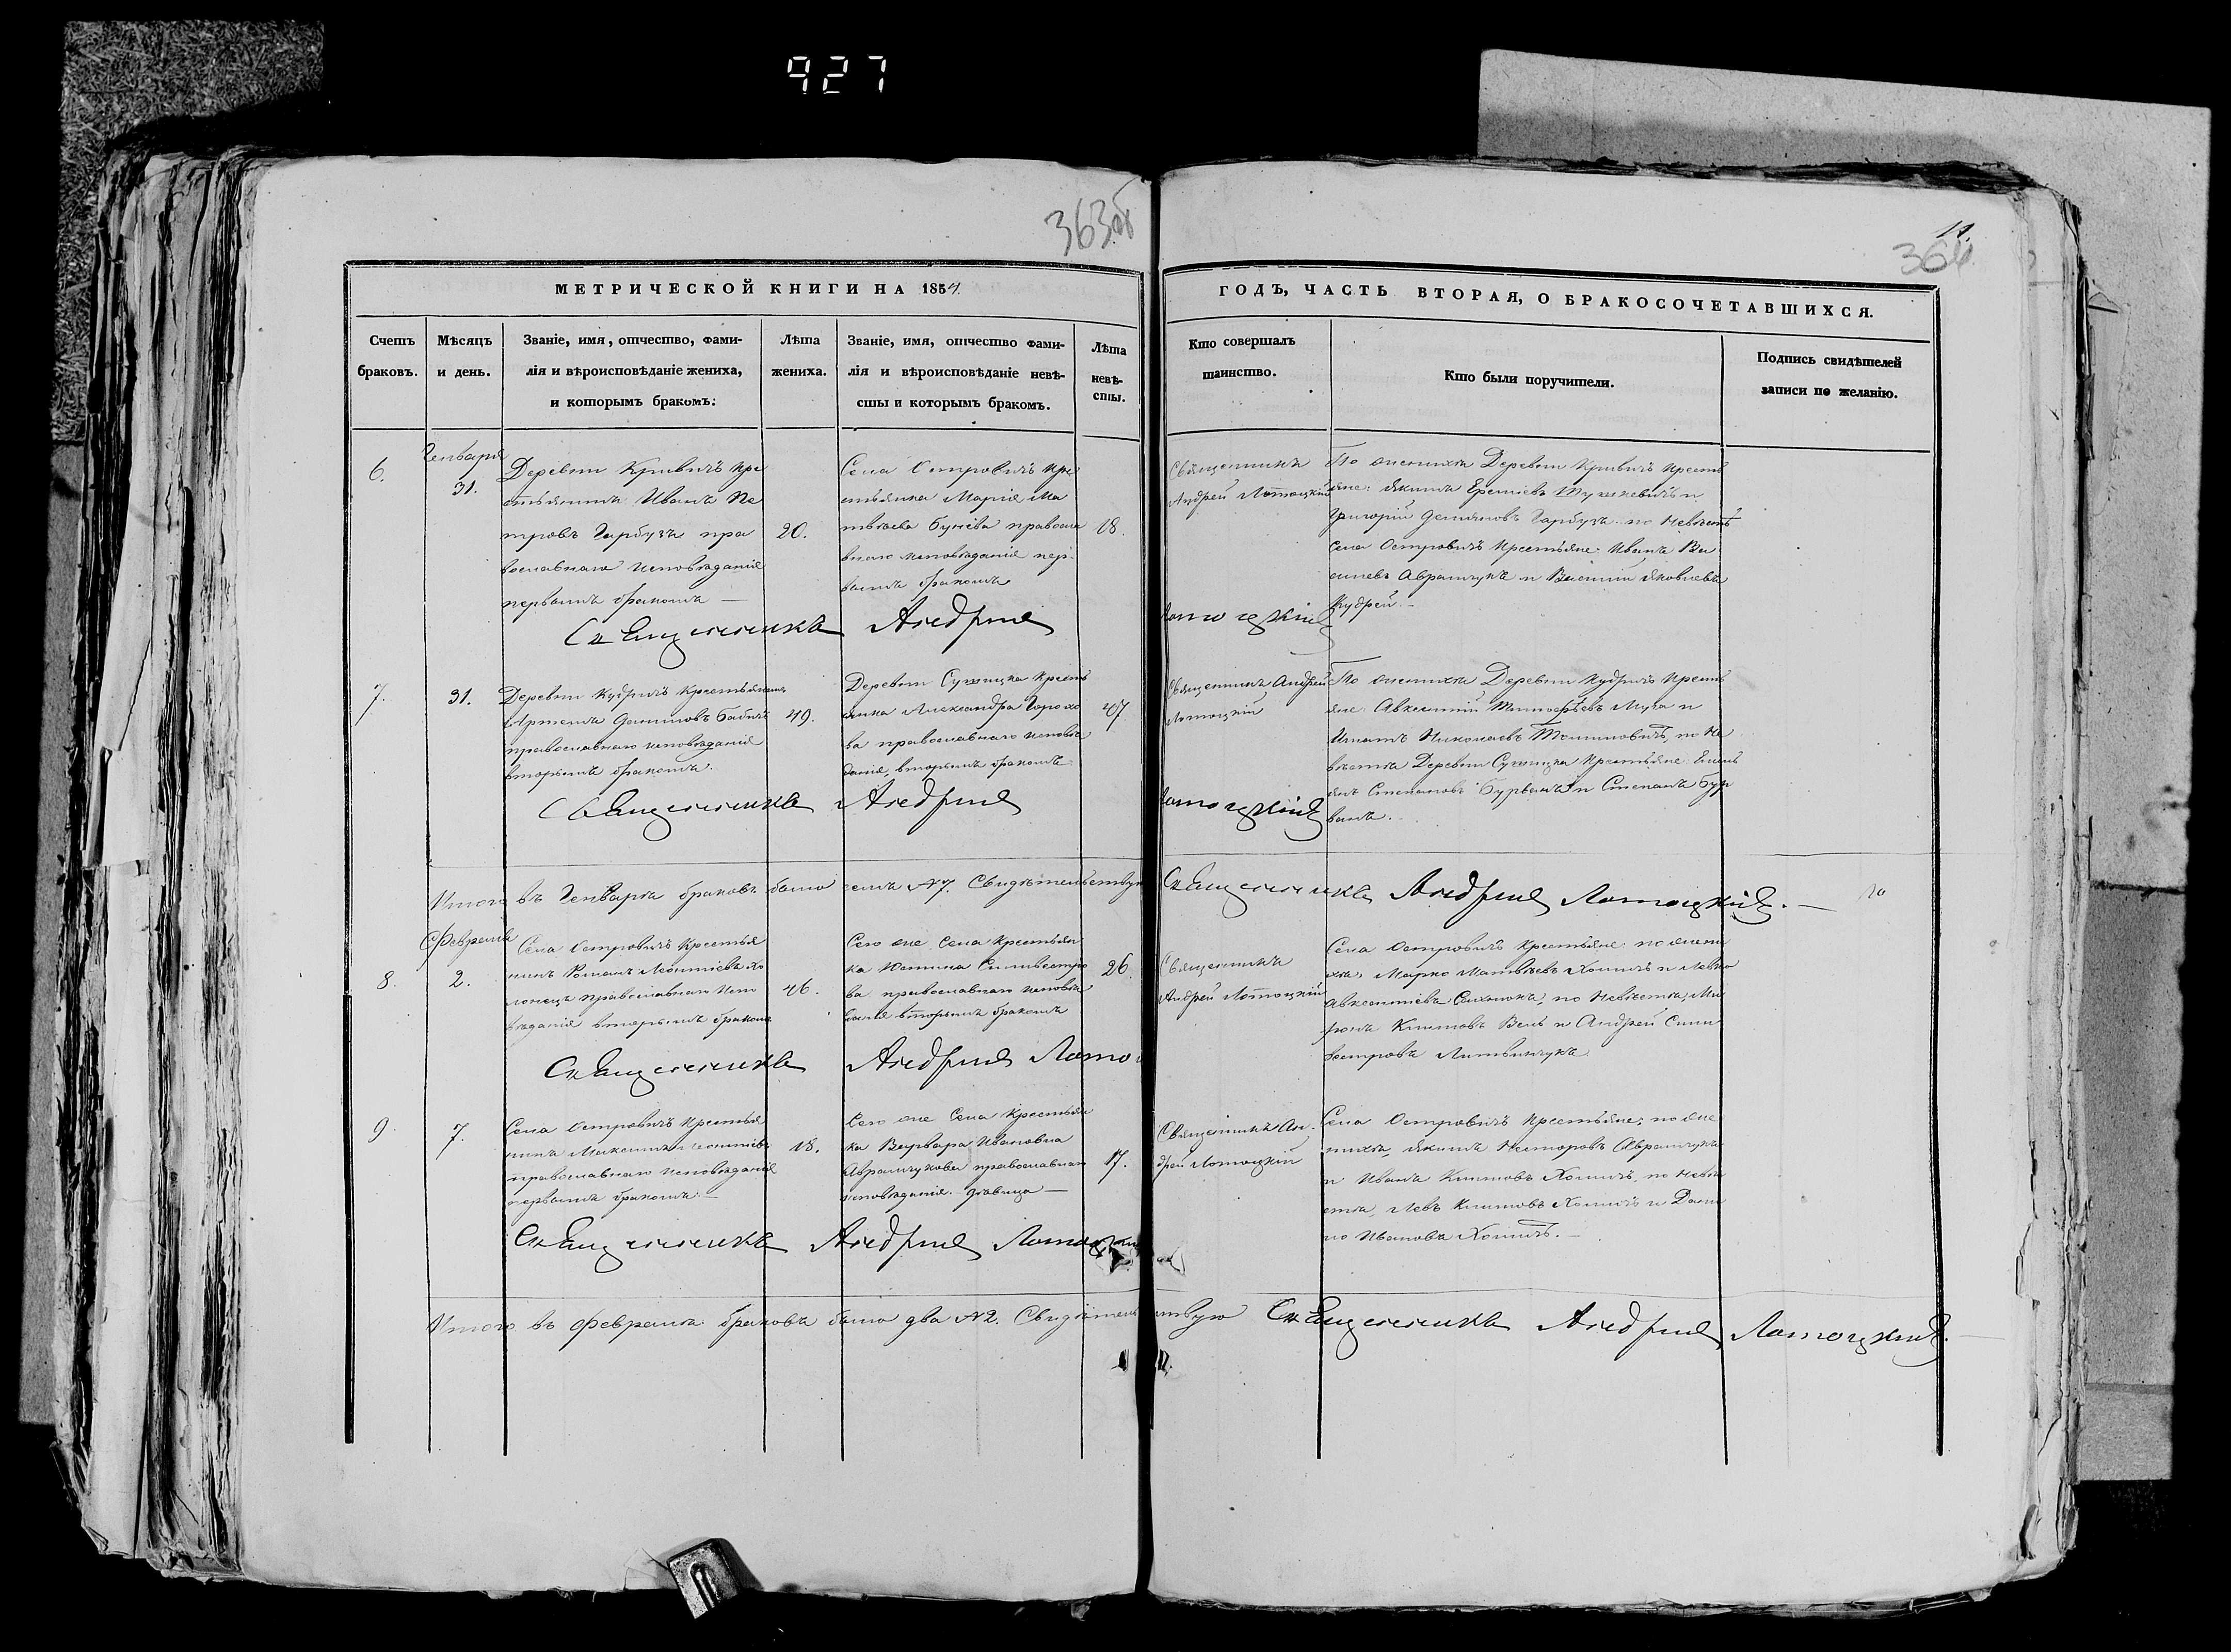 927
363об
11.
364
МЕТРИЧЕСКОЙ КНИГИ НА 1854
ГОДЪ, ЧАСТЬ ВТОРАЯ, О БРАКОСОЧЕТАВШИХСЯ.
Счетъ
браковъ.
Мѣсяцъ
и день.
Званіе, имя, отчество, фами-
лія и вѣроисповѣданіе жениха,
и которымъ бракомъ:
Лѣта
жениха.
Званіе, имя, отчество фами-
лія и вѣроисповѣданіе невѣ-
сты и которымъ бракомъ.
Лѣта
невѣ-
сты.
Кто совершалъ
таинство.
Кто были поручители.
Подпись свидѣтелей
записи по желанію.
6.
Генваря
31.
Деревни Кривичъ кре
стьянинъ Иванъ Пе
тровъ Гарбузъ пра
вославнаго исповѣданія
первымъ бракомъ —
20.
Села Островичъ кре
стьянка Марія Ма
твѣева правосла
внаго исповѣданія пер
вымъ бракомъ
18.
Священникъ
Андрей Лотоцкій
По женихѣ Деревни Кривичъ кресть
яне: Якимъ и
Григорій Демяновъ Гарбузъ по невѣстѣ
Села Островичъ крестьяне: Иванъ Ва
сильевъ Абрамчукъ и Василій Яковлевъ
Кудрей. —
Священникъ Андрей Лотоцкій
7.
31.
Деревни Кудричъ крестьянинъ
Артемъ Даниловъ Бабичъ
православнаго исповѣданія
вторымъ бракомъ.
49.
Деревни крестья
янка Александра
ва православнаго исповѣ
данія, вторымъ бракомъ
47
Священникъ Андрей
Лотоцкій
По женихѣ Деревни Кудричъ кресть
яне: Авксентій Тимофѣевъ Муха и
Игнатъ Николаевъ по не
вѣстѣ Деревни крестьяне:
Степановъ Бурванъ и Степанъ Бур
ванъ.
Священникъ Андрей Лотоцкій
Итого въ Генварѣ браковъ было семь №7. Свидѣтельствую Священникъ Андрей Лотоцкій. —
Февраля
8.
2.
Села Островичъ крестья
нинъ Романъ Леонтіевъ Хо
православнаго испо
вѣданія вторымъ бракомъ
46.
Сего же Села крестьян
ка Юстина Сильвестро
ва православнаго исповѣ
данія вторымъ бракомъ
26.
Священникъ
Андрей Лотоцкій
Села Островичъ крестьяне: по жени
хѣ, Марко Матвѣевъ Хомичъ и Левко
Авксентіевъ по невѣстѣ, Ми
ронъ Климовъ и Андрей Силь
вестровъ Литвинчукъ
Священникъ Андрей Лотоцкій
9.
7.
Села Островичъ крестья
нинъ Максимъ Леонтіевъ
православнаго исповѣданія
первымъ бракомъ. —
18.
Сего же Села крестьян
ка Варвара Ивановна
Абрамчукова православнаго
исповѣданія девица —
17.
Священникъ Ан-
дрей Лотоцкій
Села Островичъ крестьяне: по же
нихѣ, Якимъ Несторовъ Абрамчукъ
и Иванъ Климовъ Хомичъ, по невѣ
стѣ, Левъ Климовъ Хомичъ и Дани
ло Ивановъ Хомичъ. —
Священникъ Андрей Лотоцкій
Итого въ Февралѣ браковъ было два №2. Свидѣтельствую Священникъ Андрей Лотоцкій. —